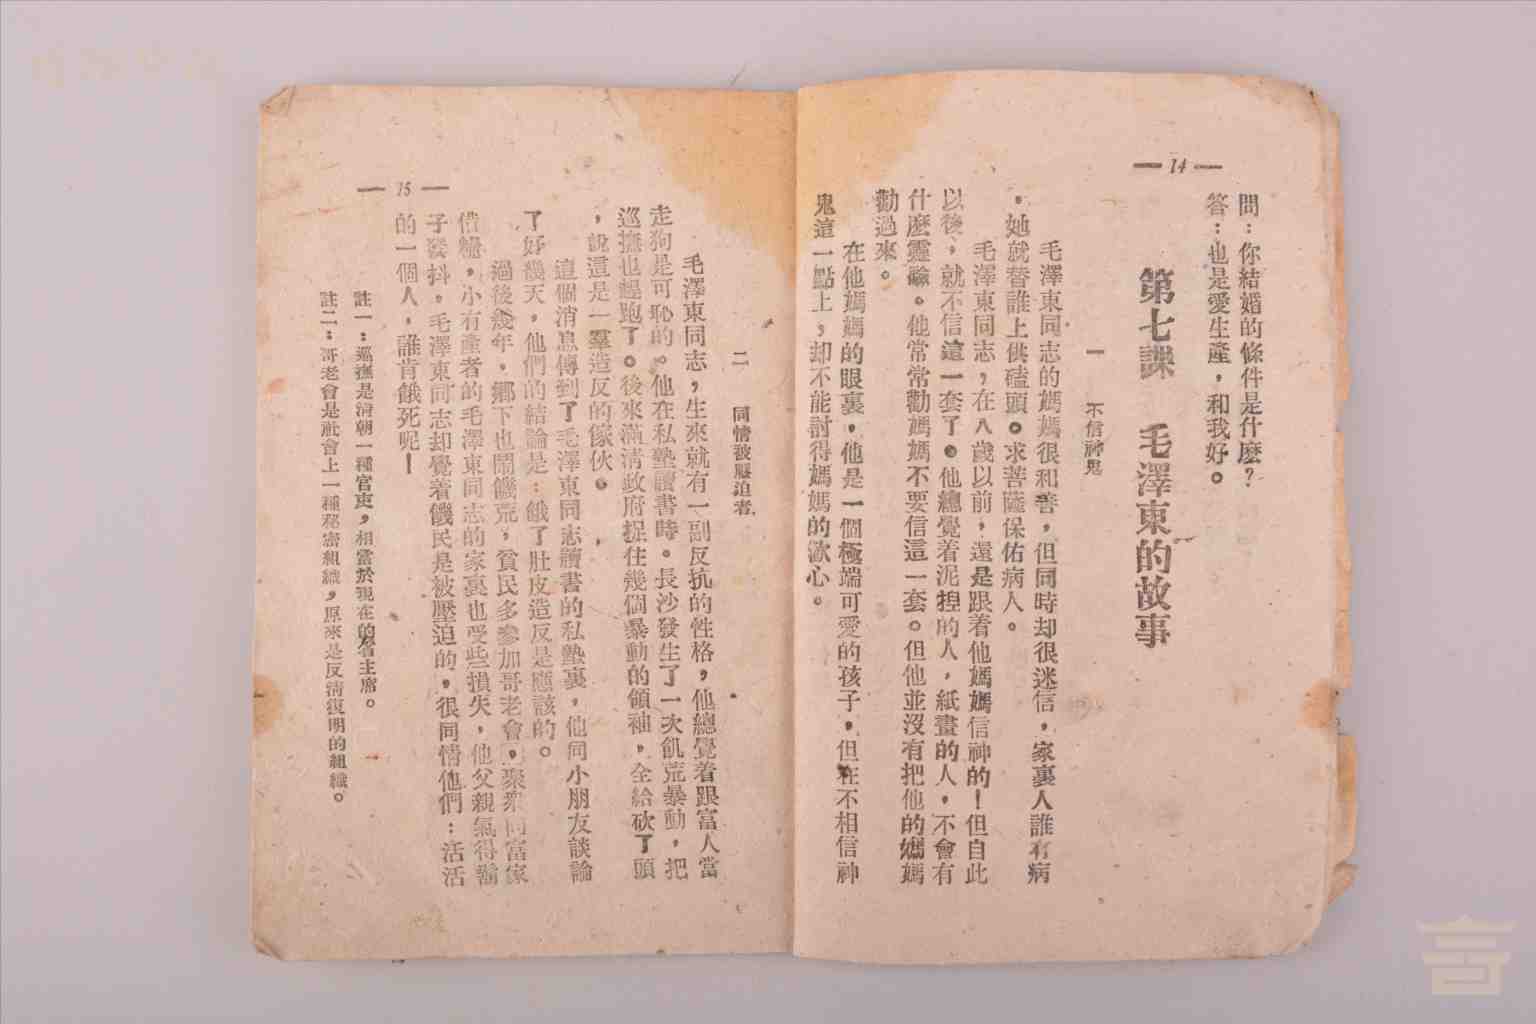 — 14 —
問：你結婚的條件是什麼？
答：也是愛生產，和我好。
第七課　毛澤東的故事
一　不信神鬼
毛澤東同志的媽媽很和善，但同時却很迷信，家裏人誰有病
，她就替誰上供磕頭。求菩薩保佑病人。
毛澤東同志，在八歲以前，還是跟着他媽媽信神的！但自此
以後，就不信這一套了。他總覺着泥捏的人，紙畫的人，不會有
什麼靈驗。他常常勸媽媽不要信這一套。但他並沒有把他的媽媽
勸過來。
在他媽媽的眼裏，他是一個極端可愛的孩子，但在不相信神
鬼這一點上，却不能討得媽媽的歡心。
— 15 —
二　同情被壓迫者
毛澤東同志，生來就有一副反抗的性格，他總覺着跟富人當
走狗是可恥的。他在私塾讀書時。長沙發生了一次飢荒暴動，把
巡撫也趕跑了。後來滿清政府捉住幾個暴動的領袖，全給砍了頭
，說這是一羣造反的傢伙。
這個消息傳到了毛澤東同志讀書的私塾裏，他同小朋友談論
了好幾天，他們的結論是：餓了肚皮造反是應該的。
過後幾年，鄉下也鬧饑荒，貧民多參加哥老會，聚衆向富家
借糧，小有產者的毛澤東同志的家裏也受些損失，他父親氣得鬍
子發抖，毛澤東同志却覺着饑民是被壓迫的，很同情他們：活活
的一個人，誰肯餓死呢！
註一：巡撫是清朝一種官吏，相當於現在的省主席。
註二：哥老會是社會上一種秘密組織，原來是反清復明的組織。